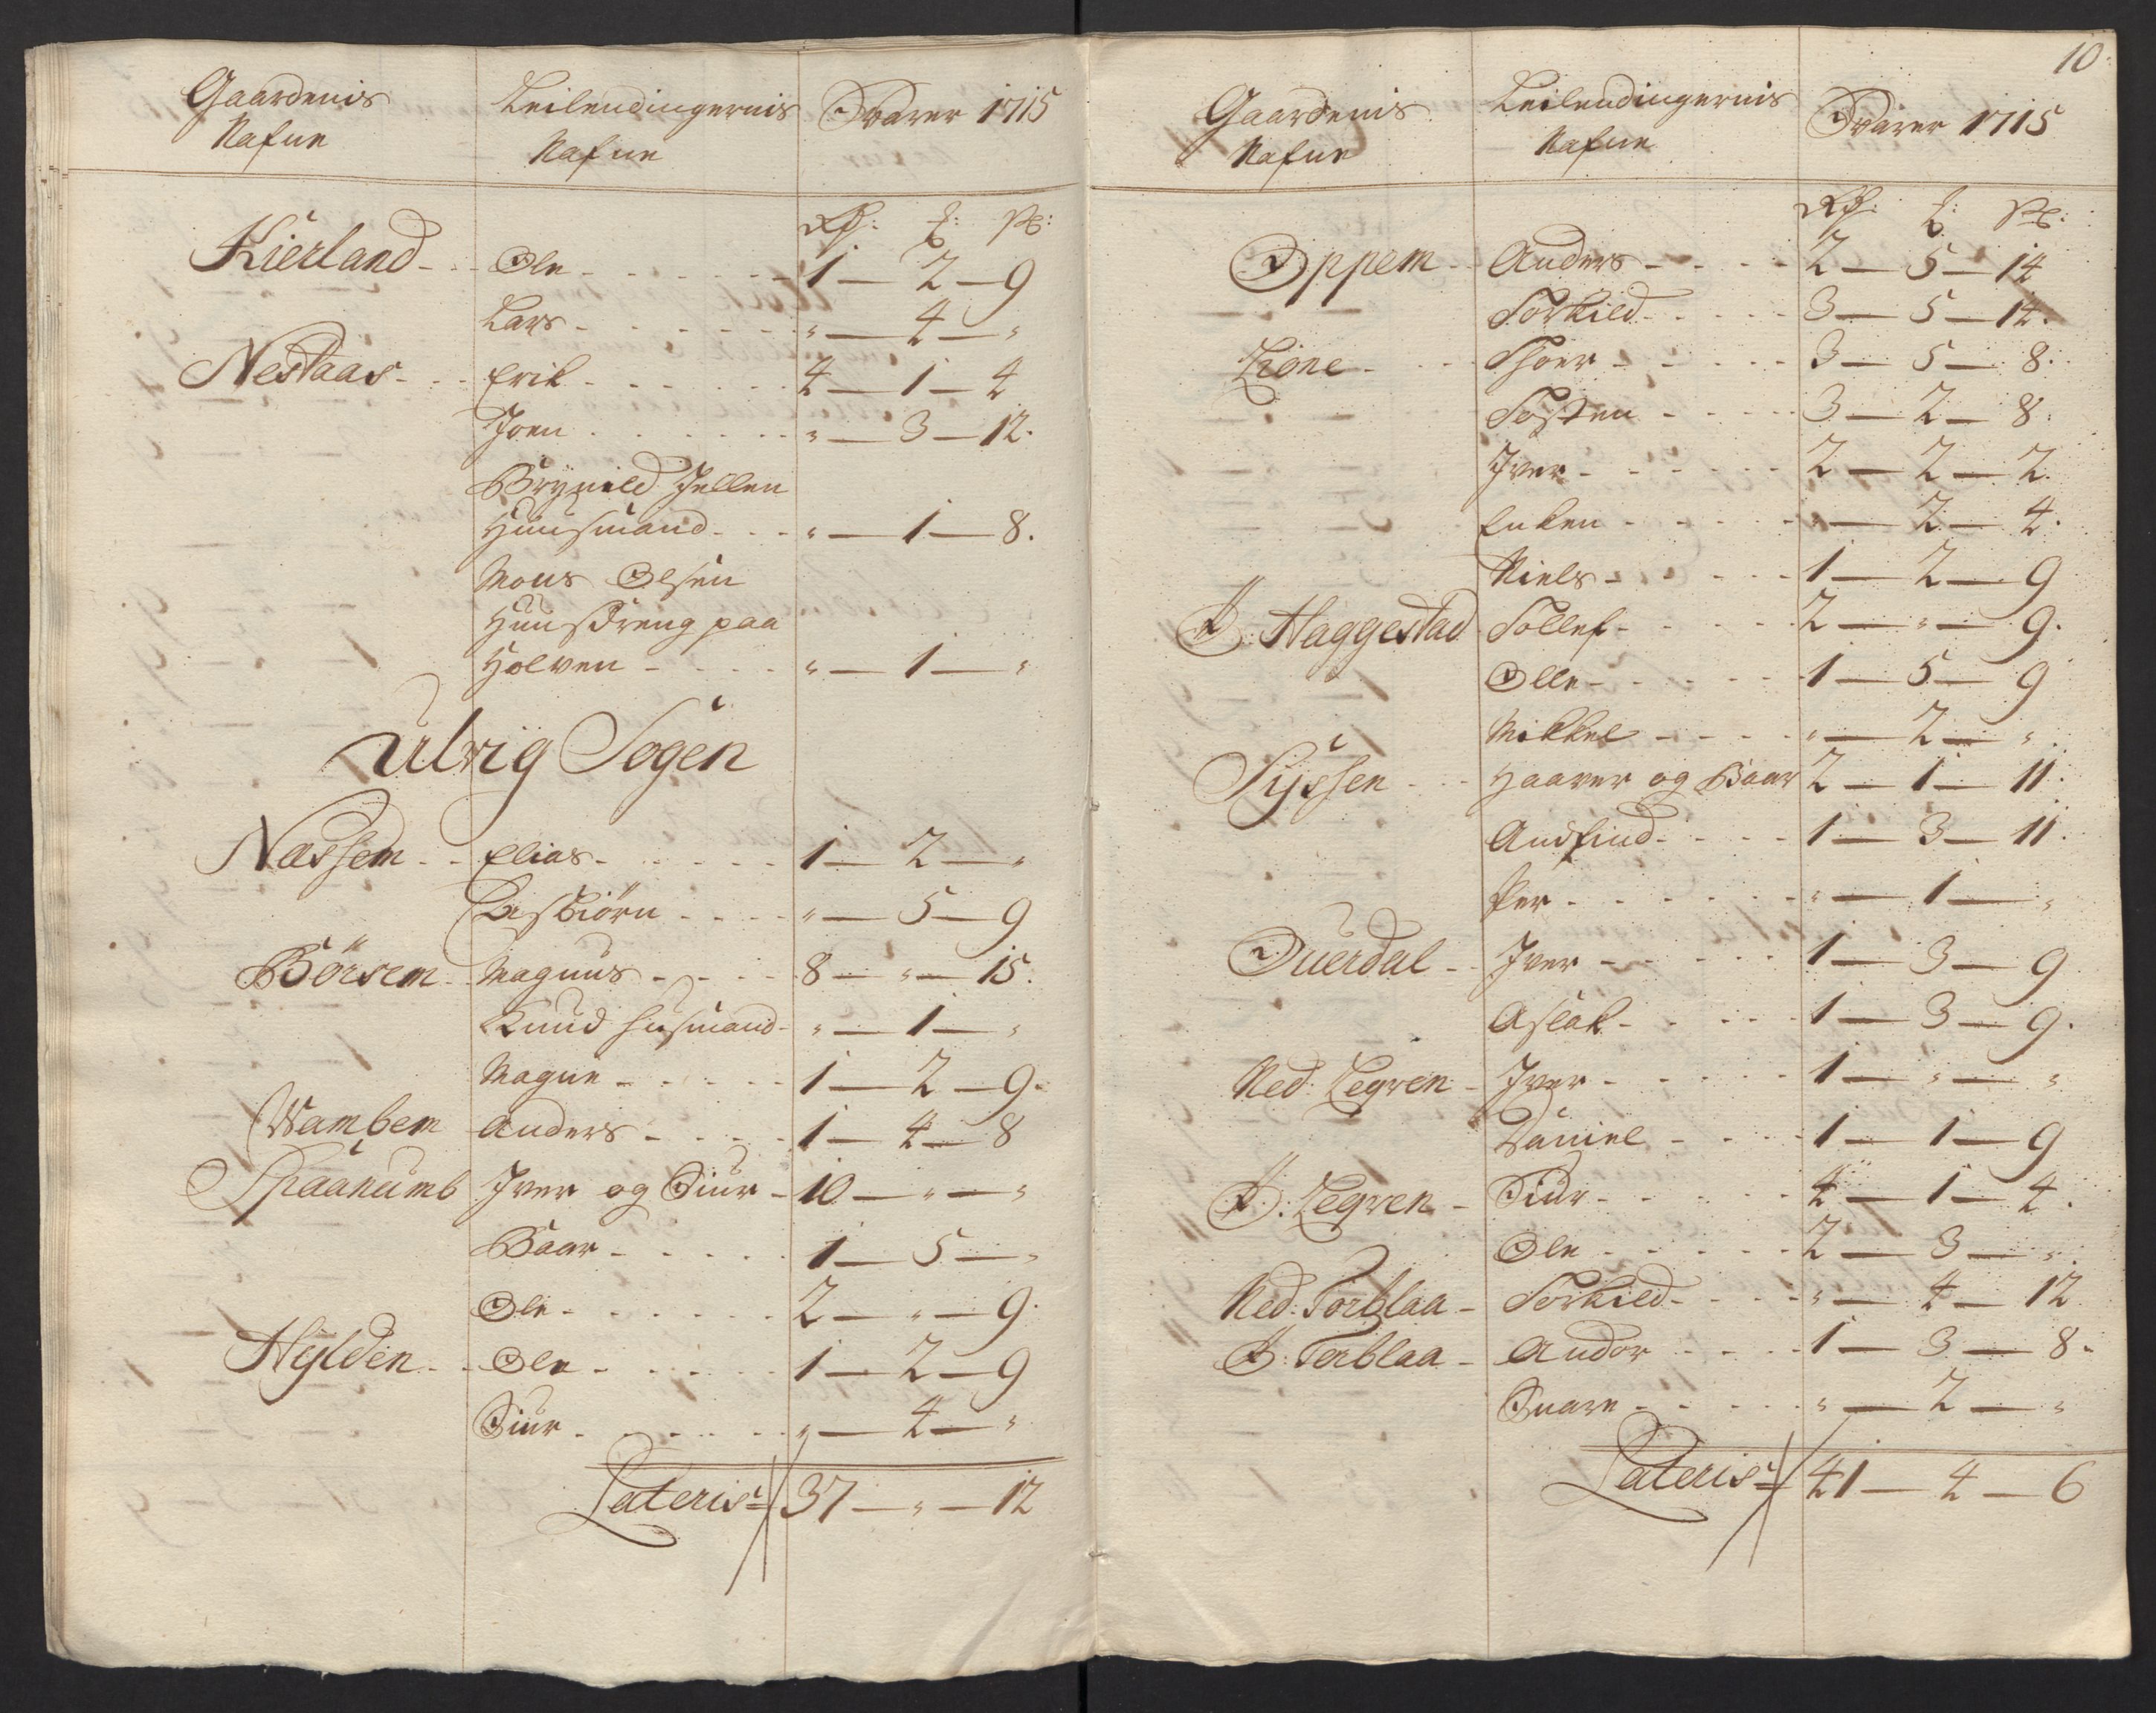 Gaardenis Nafne Leilendingernis Nafne Svarer 1715
Rdr: ℔: s:
Kierland - - Ole - - - - - - 1 — 2 — 9
Lars - - - - - - " — 4 — "
Nestaas - - - Erik - - - - - - 4 — 1 — 4
Joen - - - - - - " — 3 — 12.
Brynild Jellen
Huusmand - - - " — 1 — 8.
Mons Olsen
Huusdreng paa
Holven - - - - " — 1 — "
Ulvig Sogen
Næssem - - Elias - - - - - 1 — 2 — "
Asbiörn - - - - " — 5 — 9
Börsem - Magnus - - - - 8 — " — 15.
Knud husmand - " — 1 — "
Magne - - - - - 1 — 2 — 9.
Wambem Anders - - - - 1 — 4 — 8
Spaanumb Iver og Siur - 10 — " — "
Baar - - - - - 1 — 5 — "
Ole - - - - - - 2 — " — 9.
Hylden - - Ole - - - - - 1 — 2 — 9
Siur - - - - - - " — 4 — "
Lateris 37 — " — 12
10
Gaardenis Nafne Leilendingernis Nafne Svarer 1715
Rdr: ℔: s:
Oppem - - Anders - - - - 2 — 5 — 14
Torkild - - - - - 3 — 5 — 14.
Lione - - - Thoer - - - - - 3 — 5 — 8.
Tosten - - - - - 3 — 2 — 8.
Iver - - - - - - 2 — 2 — 2.
Enken - - - - - " — 2 — 4.
Niels - - - - - 1 — 2 — 9
Ø: Haggestad Tollef - - - - - 2 — " — 9.
Olle - - - - - - 1 — 5 — 9
Mikkel - - - - " — 2 — "
Syssen - - - Haaver og Baar 2 — 1 — 11.
Andfind - - - - 1 — 3 — 11.
Per - - - - - - " — 1 — "
Duerdal - - Iver - - - - - 1 — 3 — 9
Aslak - - - - - 1 — 3 — 9.
Ned: Legren - Iver - - - - - 1 — " — "
Daniel - - - - 1 — 1 — 9
Ø: Legren - Siur - - - - - 4 — 1 — 4.
Ole - - - - - - 2 — 3 — "
Ned: Torblaa - Torkild - - - - " — 4 — 12
Ø: Torblaa - Andor - - - - 1 — 3 — 8.
Snare - - - - - " — 2 — "
Lateris 41 — 4 — 6